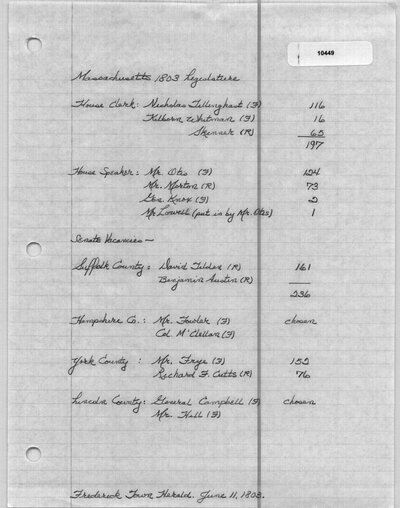 10449
Massachusetts 1803 Legislature
House Clerk: Nicholas Tillinghast (F) 116
Kilborn Whitman (F) 16
Skinner (R) 65
197
House Speaker: Mr. Otis (F) 124
Mr. Morton (R) 73
Gen. Knox (F) 2
Mr Lowell (put in by Mr. Otis) 1
Senate Vacancies —
Suffolk County: David Tilden (R) 161
Benjamin Austin (R)
236
Hampshire Co.: Mr. Fowler (F) chosen
Col. McClellan (F)
York County: Mr. Frye (F) 152
Richard F. Cutts (R) 76
Lincoln County: General Campbell (F) chosen
Mr. Hall (F)
Frederick Town Herald. June 11, 1803.